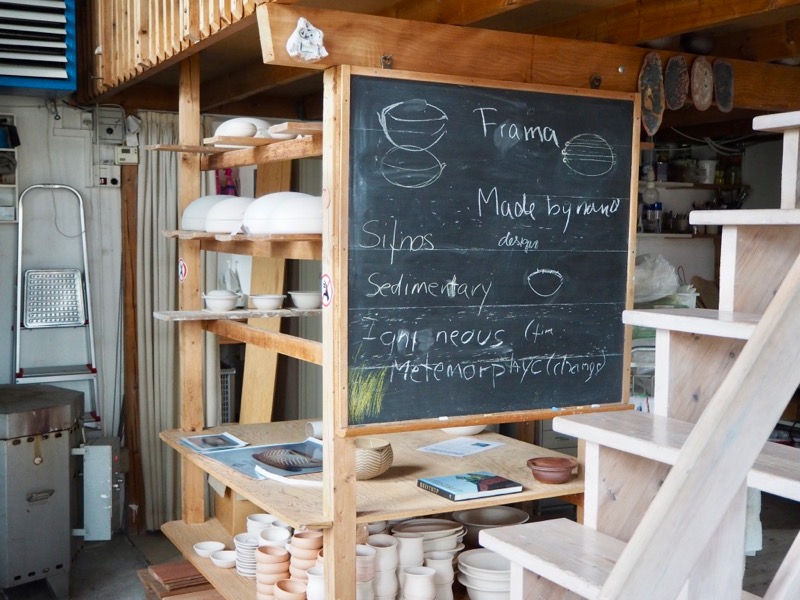 Frama
Made by nano
design
Sifnos
Sedimentary
Igni neous (
Metemorphyc (change)